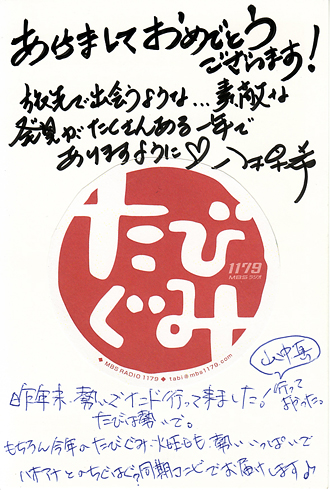 あけましておめでとう
ございます!
旅先で出会うような…素敵な
発見がたくさんある一年で
ありますように♡
たび
ぐみ
1179
MBS RADIO
◆ MBS RADIO 1179 ◆ tabi@mbs1179.com
山中真
昨年末、勢いでインド行って来ました!
行って
よかったっ
たびは勢いで。
もちろん今年のたびぐみ火曜日も、勢いいっぱいで
同期コンビでお届けします♪